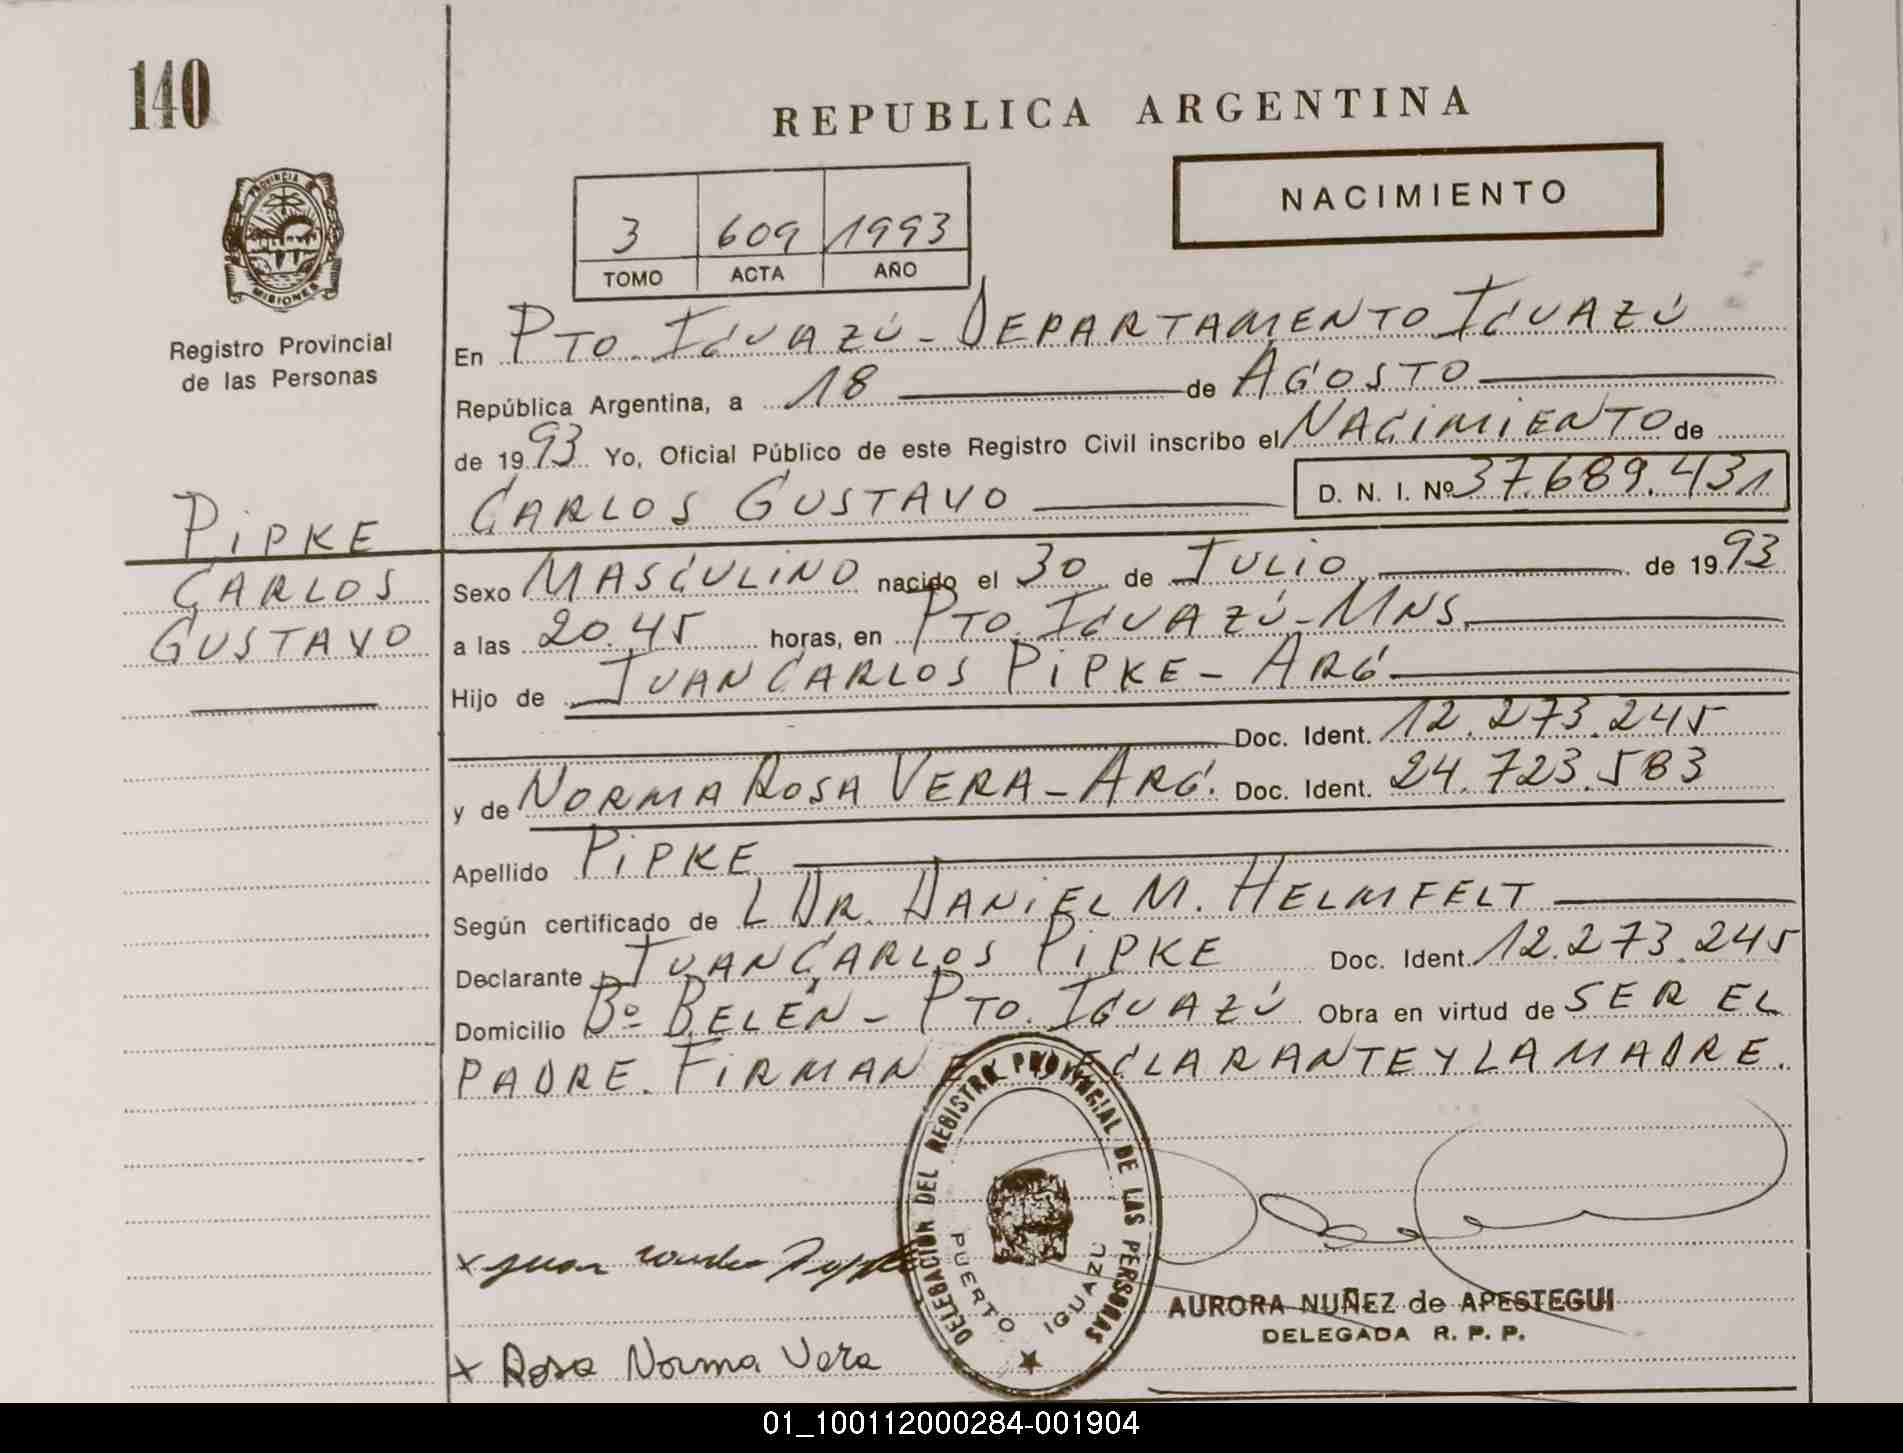 140
REPUBLICA ARGENTINA
NACIMIENTO
3 609 1993
TOMO ACTA AÑO
PROVINCIA
MISIONES
Registro Provincial
de las Personas
En PTO. IGUAZÚ - DEPARTAMENTO IGUAZÚ
República Argentina, a 18 de AGOSTO
de 1993 Yo, Oficial Público de este Registro Civil inscribo el NACIMIENTO de
CARLOS GUSTAVO D. N. I. Nº 37.689.431
PIPKE
CARLOS
GUSTAVO
Sexo MASCULINO nacido el 30 de JULIO de 1993
a las 20.45 horas, en PTO. IGUAZÚ - MNS.
Hijo de JUAN CARLOS PIPKE - ARG.
Doc. Ident. 12.273.245
y de NORMA ROSA VERA - ARG. Doc. Ident. 24.723.583
Apellido PIPKE
Según certificado de L DR. DANIEL M. HELMFELT
Declarante JUAN CARLOS PIPKE Doc. Ident. 12.273.245
Domicilio Bº BELÉN - PTO. IGUAZÚ Obra en virtud de SER EL
PADRE. FIRMAN ECLARANTE Y LA MADRE.
DELEGACION DEL REGISTRO PROVINCIAL DE LAS PERSONAS
PUERTO IGUAZU
x Juan
AURORA NUÑEZ de APESTEGUI
DELEGADA R. P. P.
x Rosa Norma Vera
01_100112000284-001904